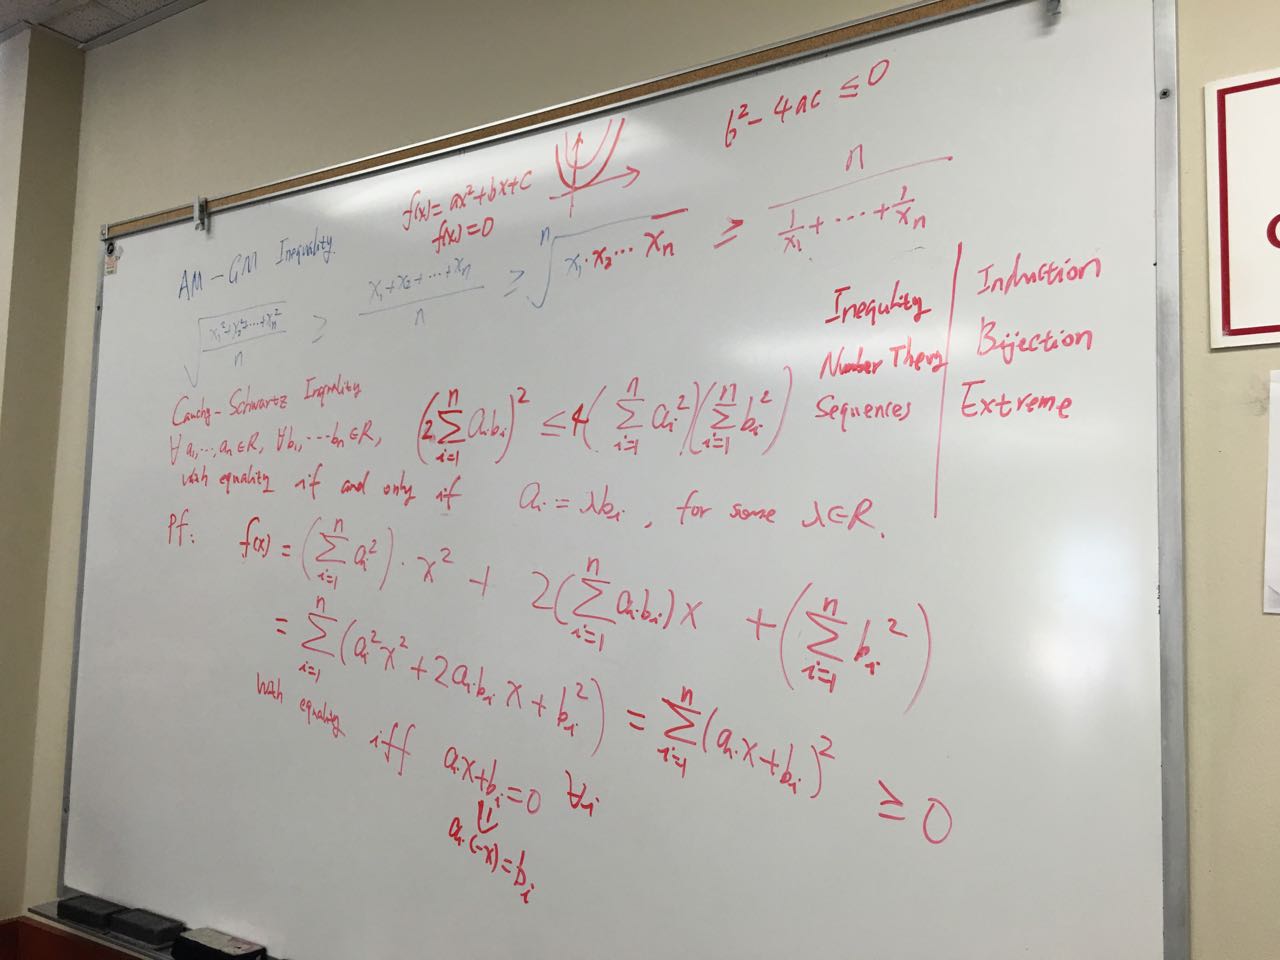 b² - 4ac ≤ 0
f(x) = ax² + bx + c
f(x) = 0
AM - GM Inequality.
√((x₁² + x₂² + ··· + xₙ²)/n) ≥ (x₁ + x₂ + ··· + xₙ)/n ≥ ⁿ√(x₁·x₂ ··· xₙ) ≥ n/(1/x₁ + ··· + 1/xₙ)
Inequlity
Number Theory
Sequences
Induction
Bijection
Extreme
Cauchy - Schwartz Inequality
∀ a₁, ···, aₙ ∈ R, ∀ b₁, ··· bₙ ∈ R, (2 Σᵢ₌₁ⁿ aᵢbᵢ)² ≤ 4(Σᵢ₌₁ⁿ aᵢ²)(Σᵢ₌₁ⁿ bᵢ²)
with equality if and only if aᵢ = λbᵢ, for some λ ∈ R.
Pf: f(x) = (Σᵢ₌₁ⁿ aᵢ²) · x² + 2(Σᵢ₌₁ⁿ aᵢbᵢ)x + (Σᵢ₌₁ⁿ bᵢ²)
= Σᵢ₌₁ⁿ (aᵢ²x² + 2aᵢbᵢx + bᵢ²) = Σᵢ₌₁ⁿ (aᵢx + bᵢ)² ≥ 0
with equality iff aᵢx + bᵢ = 0 ∀i
aᵢ·(-x) = bᵢ